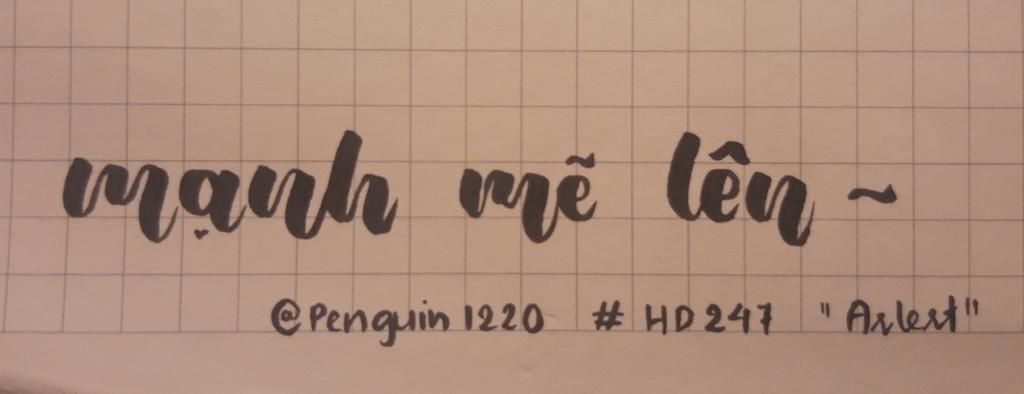 mạnh mẽ lên ~
@Penguin1220 # HD247 "Arlert"